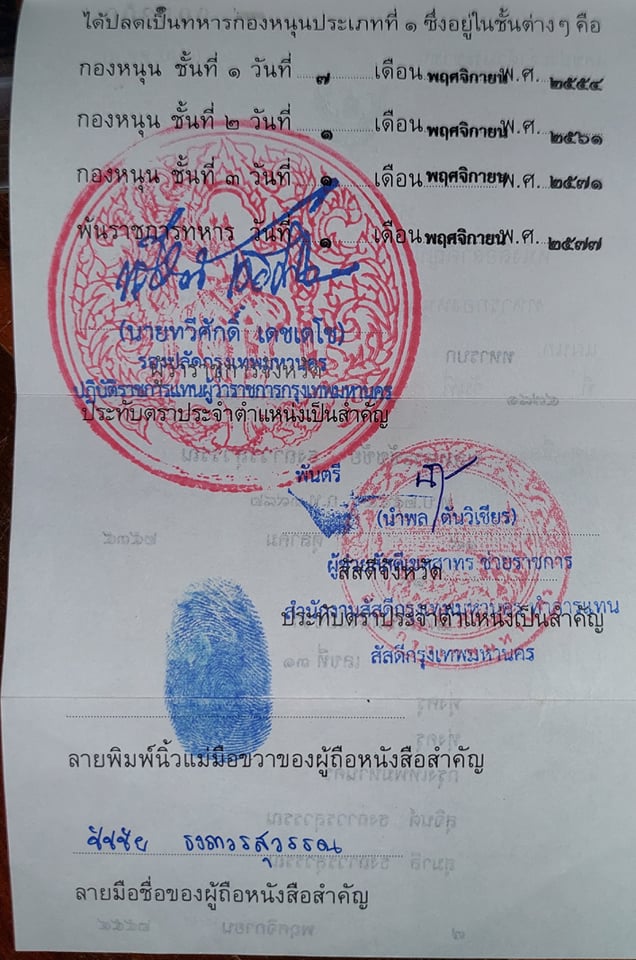 ได้ปลดเป็นทหารกองหนุนประเภทที่ ๑ ซึ่งอยู่ในชั้นต่างๆ คือ
กองหนุน ชั้นที่ ๑ วันที่ ๗ เดือน พฤศจิกายน พ.ศ. ๒๕๕๔
กองหนุน ชั้นที่ ๒ วันที่ ๑ เดือน พฤศจิกายน พ.ศ. ๒๕๖๑
กองหนุน ชั้นที่ ๓ วันที่ ๑ เดือน พฤศจิกายน พ.ศ. ๒๕๗๑
พ้นราชการทหาร วันที่ ๑ เดือน พฤศจิกายน พ.ศ. ๒๕๗๗
(นายทวีศักดิ์ เดชเดโช)
รองปลัดกรุงเทพมหานคร
ผู้ว่าราชการจังหวัด
ปฏิบัติราชการแทนผู้ว่าราชการกรุงเทพมหานคร
ประทับตราประจำตำแหน่งเป็นสำคัญ
พันตรี
(นำพล ตันวิเชียร)
ผู้ช่วยสัสดีเขตสาทร ช่วยราชการ
สัสดีจังหวัด
สำนักงานสัสดีกรุงเทพมหานคร ทำการแทน
ประทับตราประจำตำแหน่งเป็นสำคัญ
สัสดีกรุงเทพมหานคร
ลายพิมพ์นิ้วแม่มือขวาของผู้ถือหนังสือสำคัญ
ชัชชัย ธงถาวรสุวรรณ
ลายมือชื่อของผู้ถือหนังสือสำคัญ